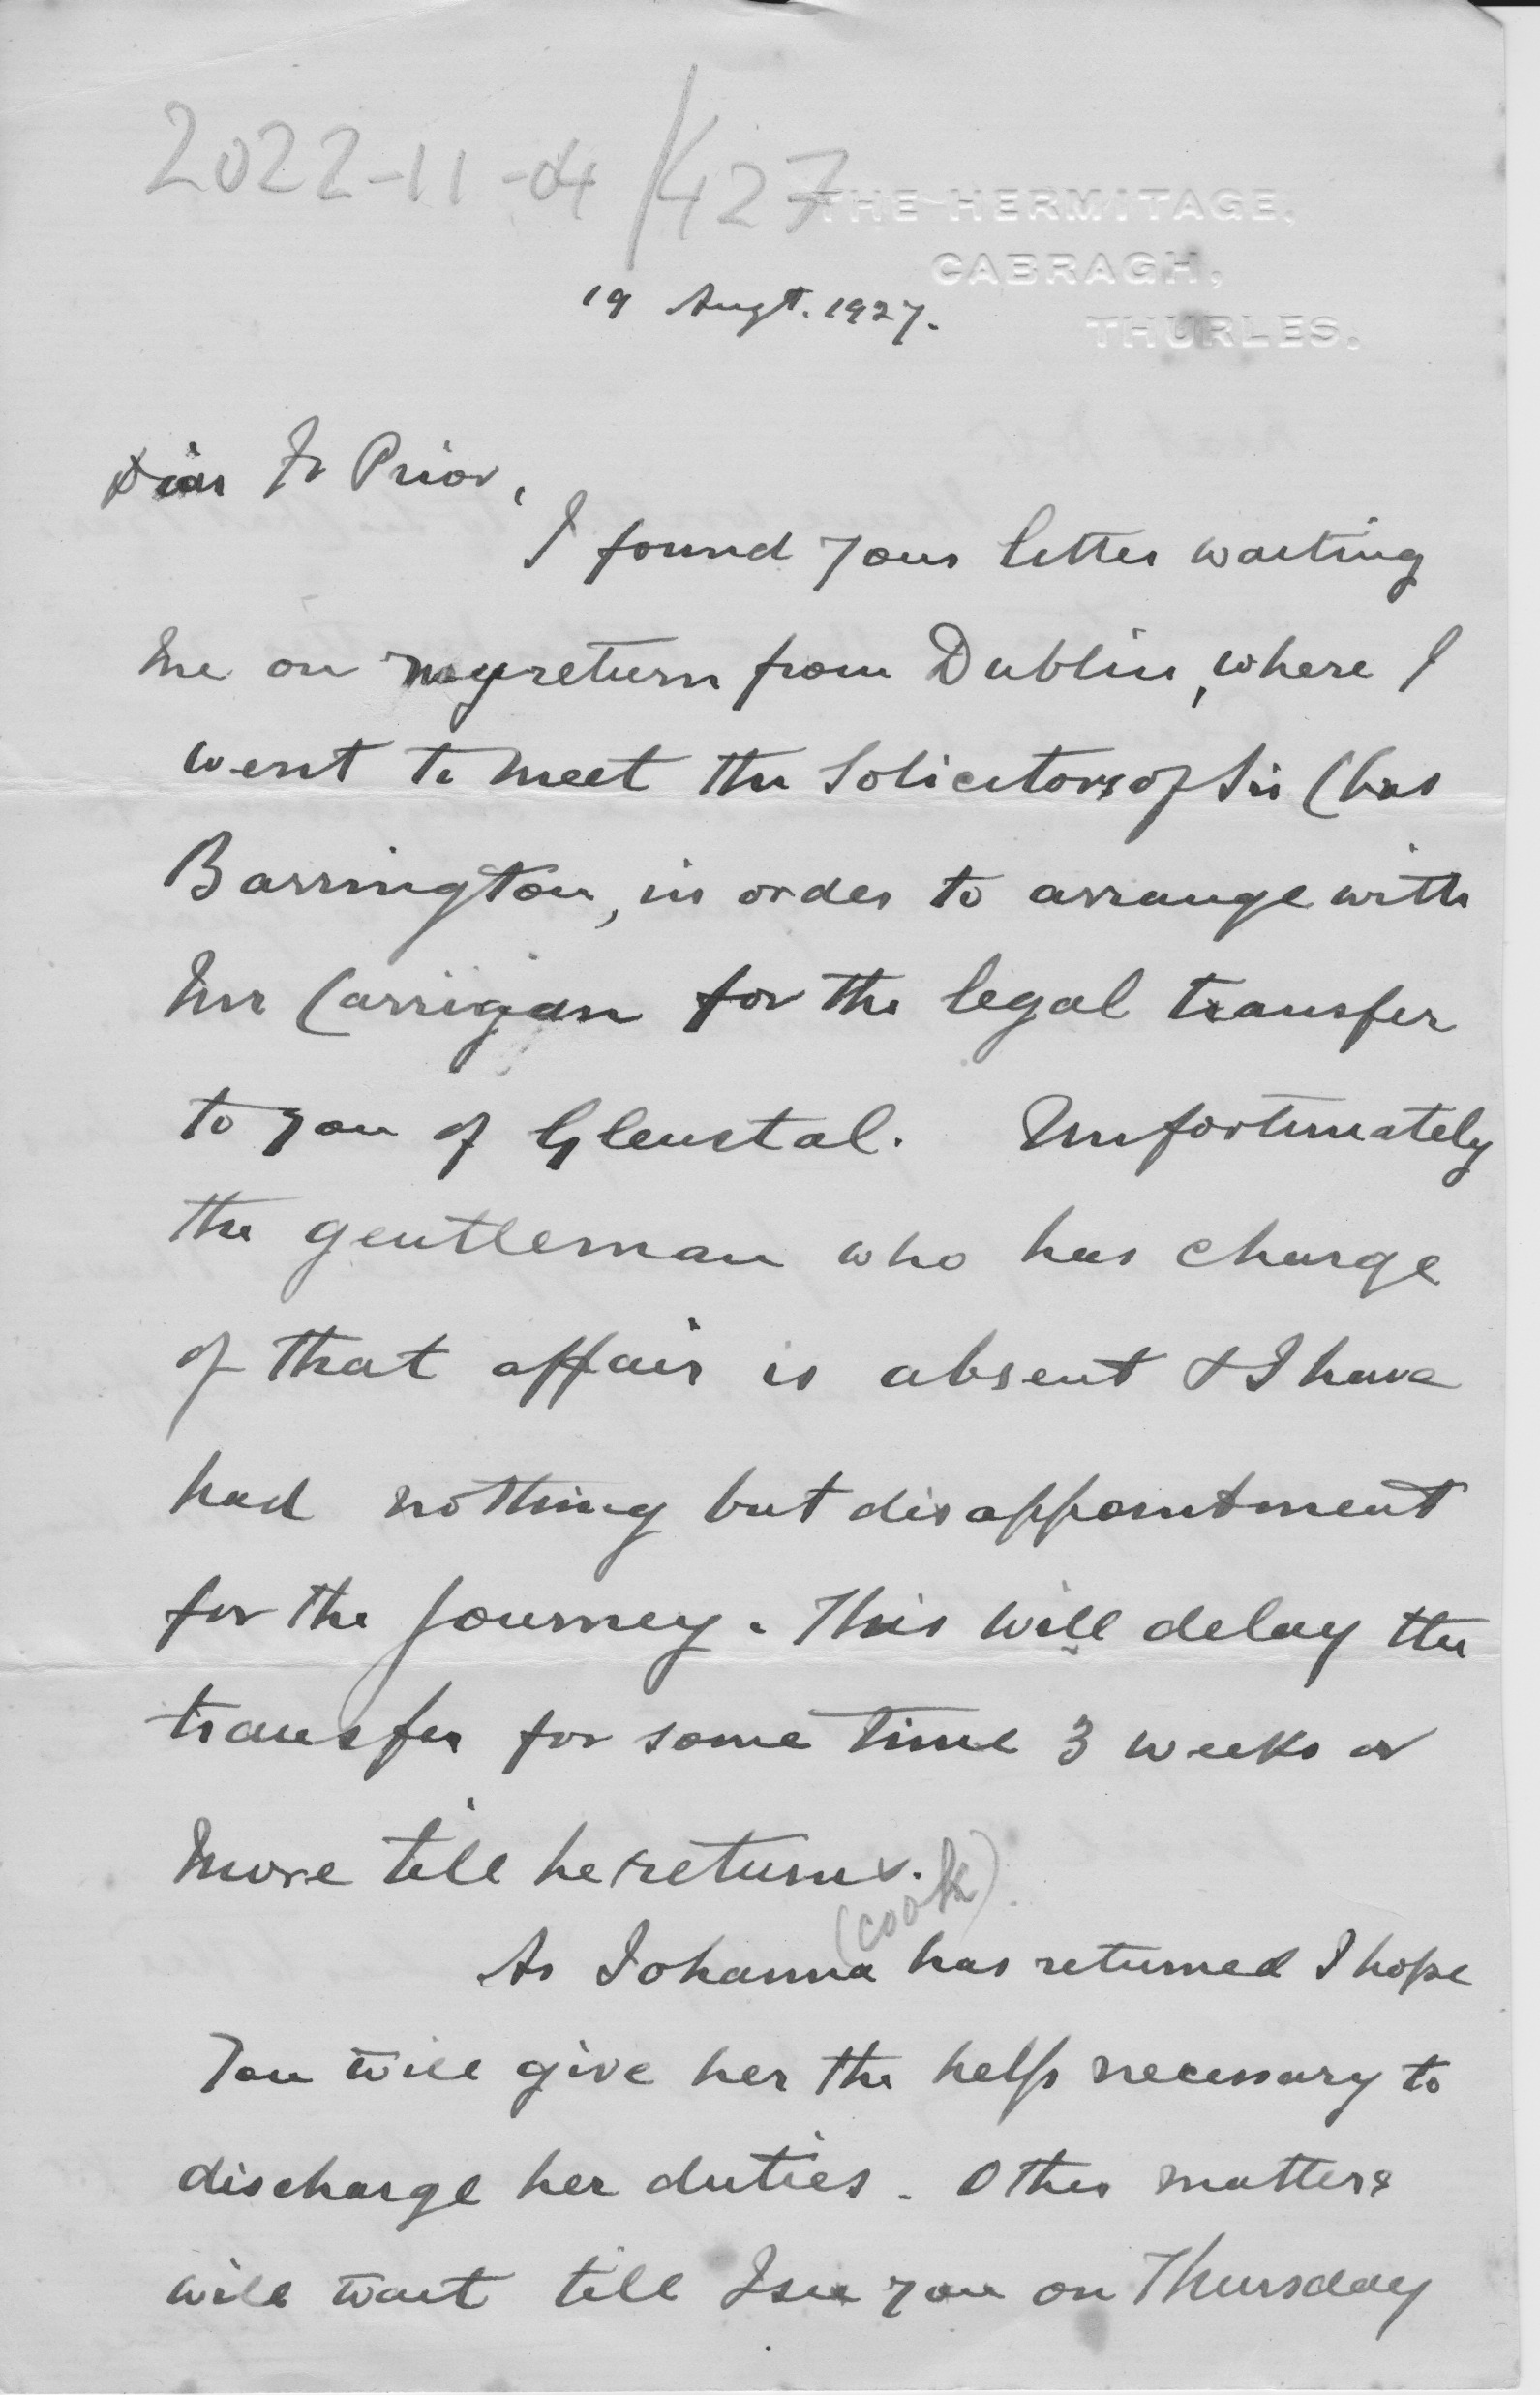 2022-11-04/427
THE HERMITAGE,
CABRAGH,
THURLES.
19 Augt. 1927.
Dear Fr Prior,
I found your letter waiting
me on my return from Dublin, where I
went to meet the Solicitors of Sir Chas
Barrington, in order to arrange with
Mr Carrigan for the legal transfer
to you of Glenstal. Unfortunately
the gentleman who has charge
of that affair is absent & I have
had nothing but disappointment
for the journey. This will delay the
transfer for some time 3 weeks or
more till he returns.
(cook)
As Johanna has returned I hope
you will give her the help necessary to
discharge her duties. Other matters
will wait till I see you on Thursday